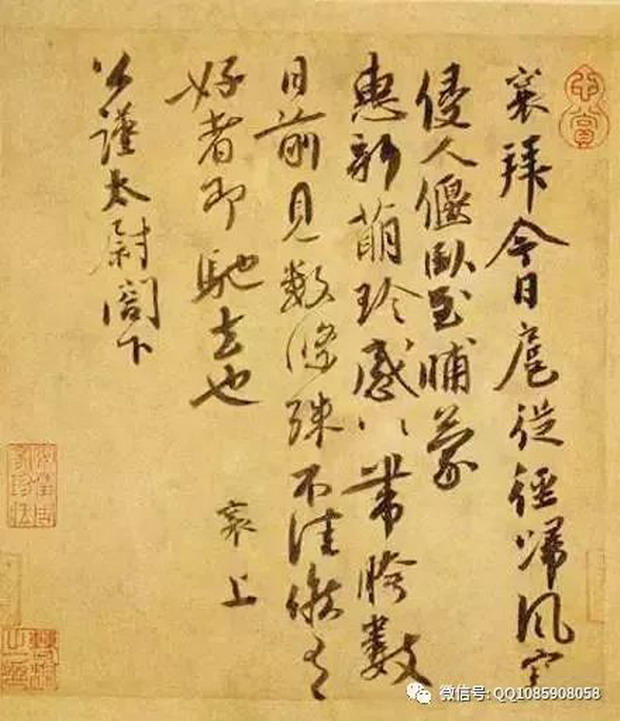 襄拜今日扈從徑歸風寒
侵人偃臥至晡蒙
惠新萌珍感〻帶胯數
日前見數條殊不佳候有
好者即馳去也
襄上
公謹太尉閤下
微信号: QQ1085908058